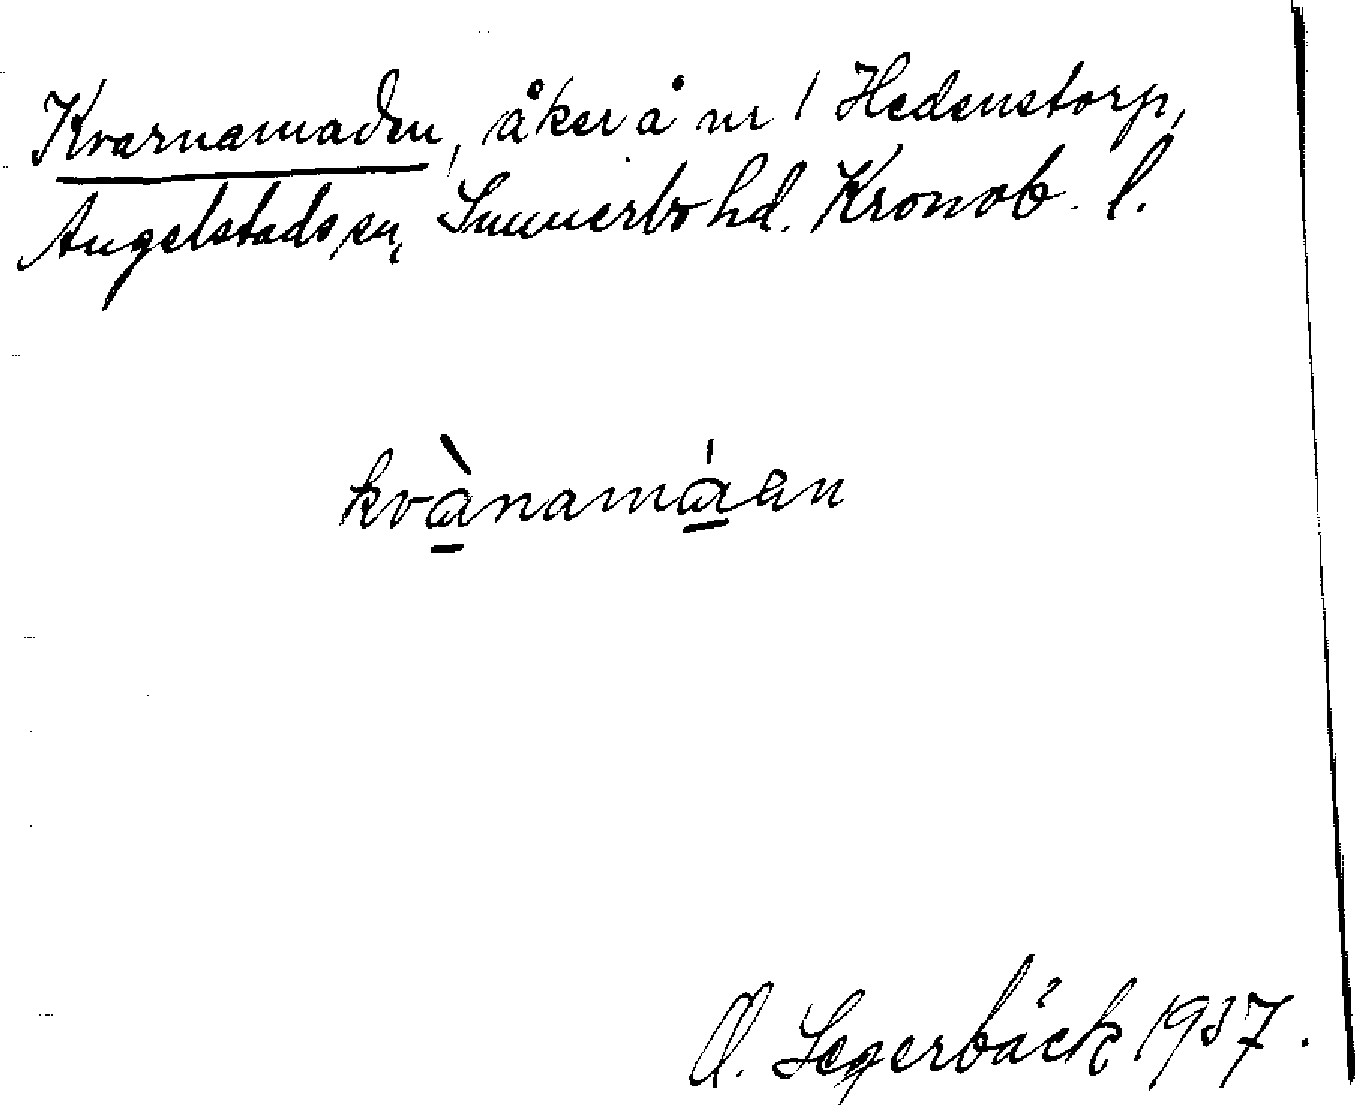 Kvarnamaden, åker å nr 1 Hedenstorp,
Angelstads sn, Sunnerbo hd. Kronob. l.
kvànamáen
O. Segerbäck 1937.